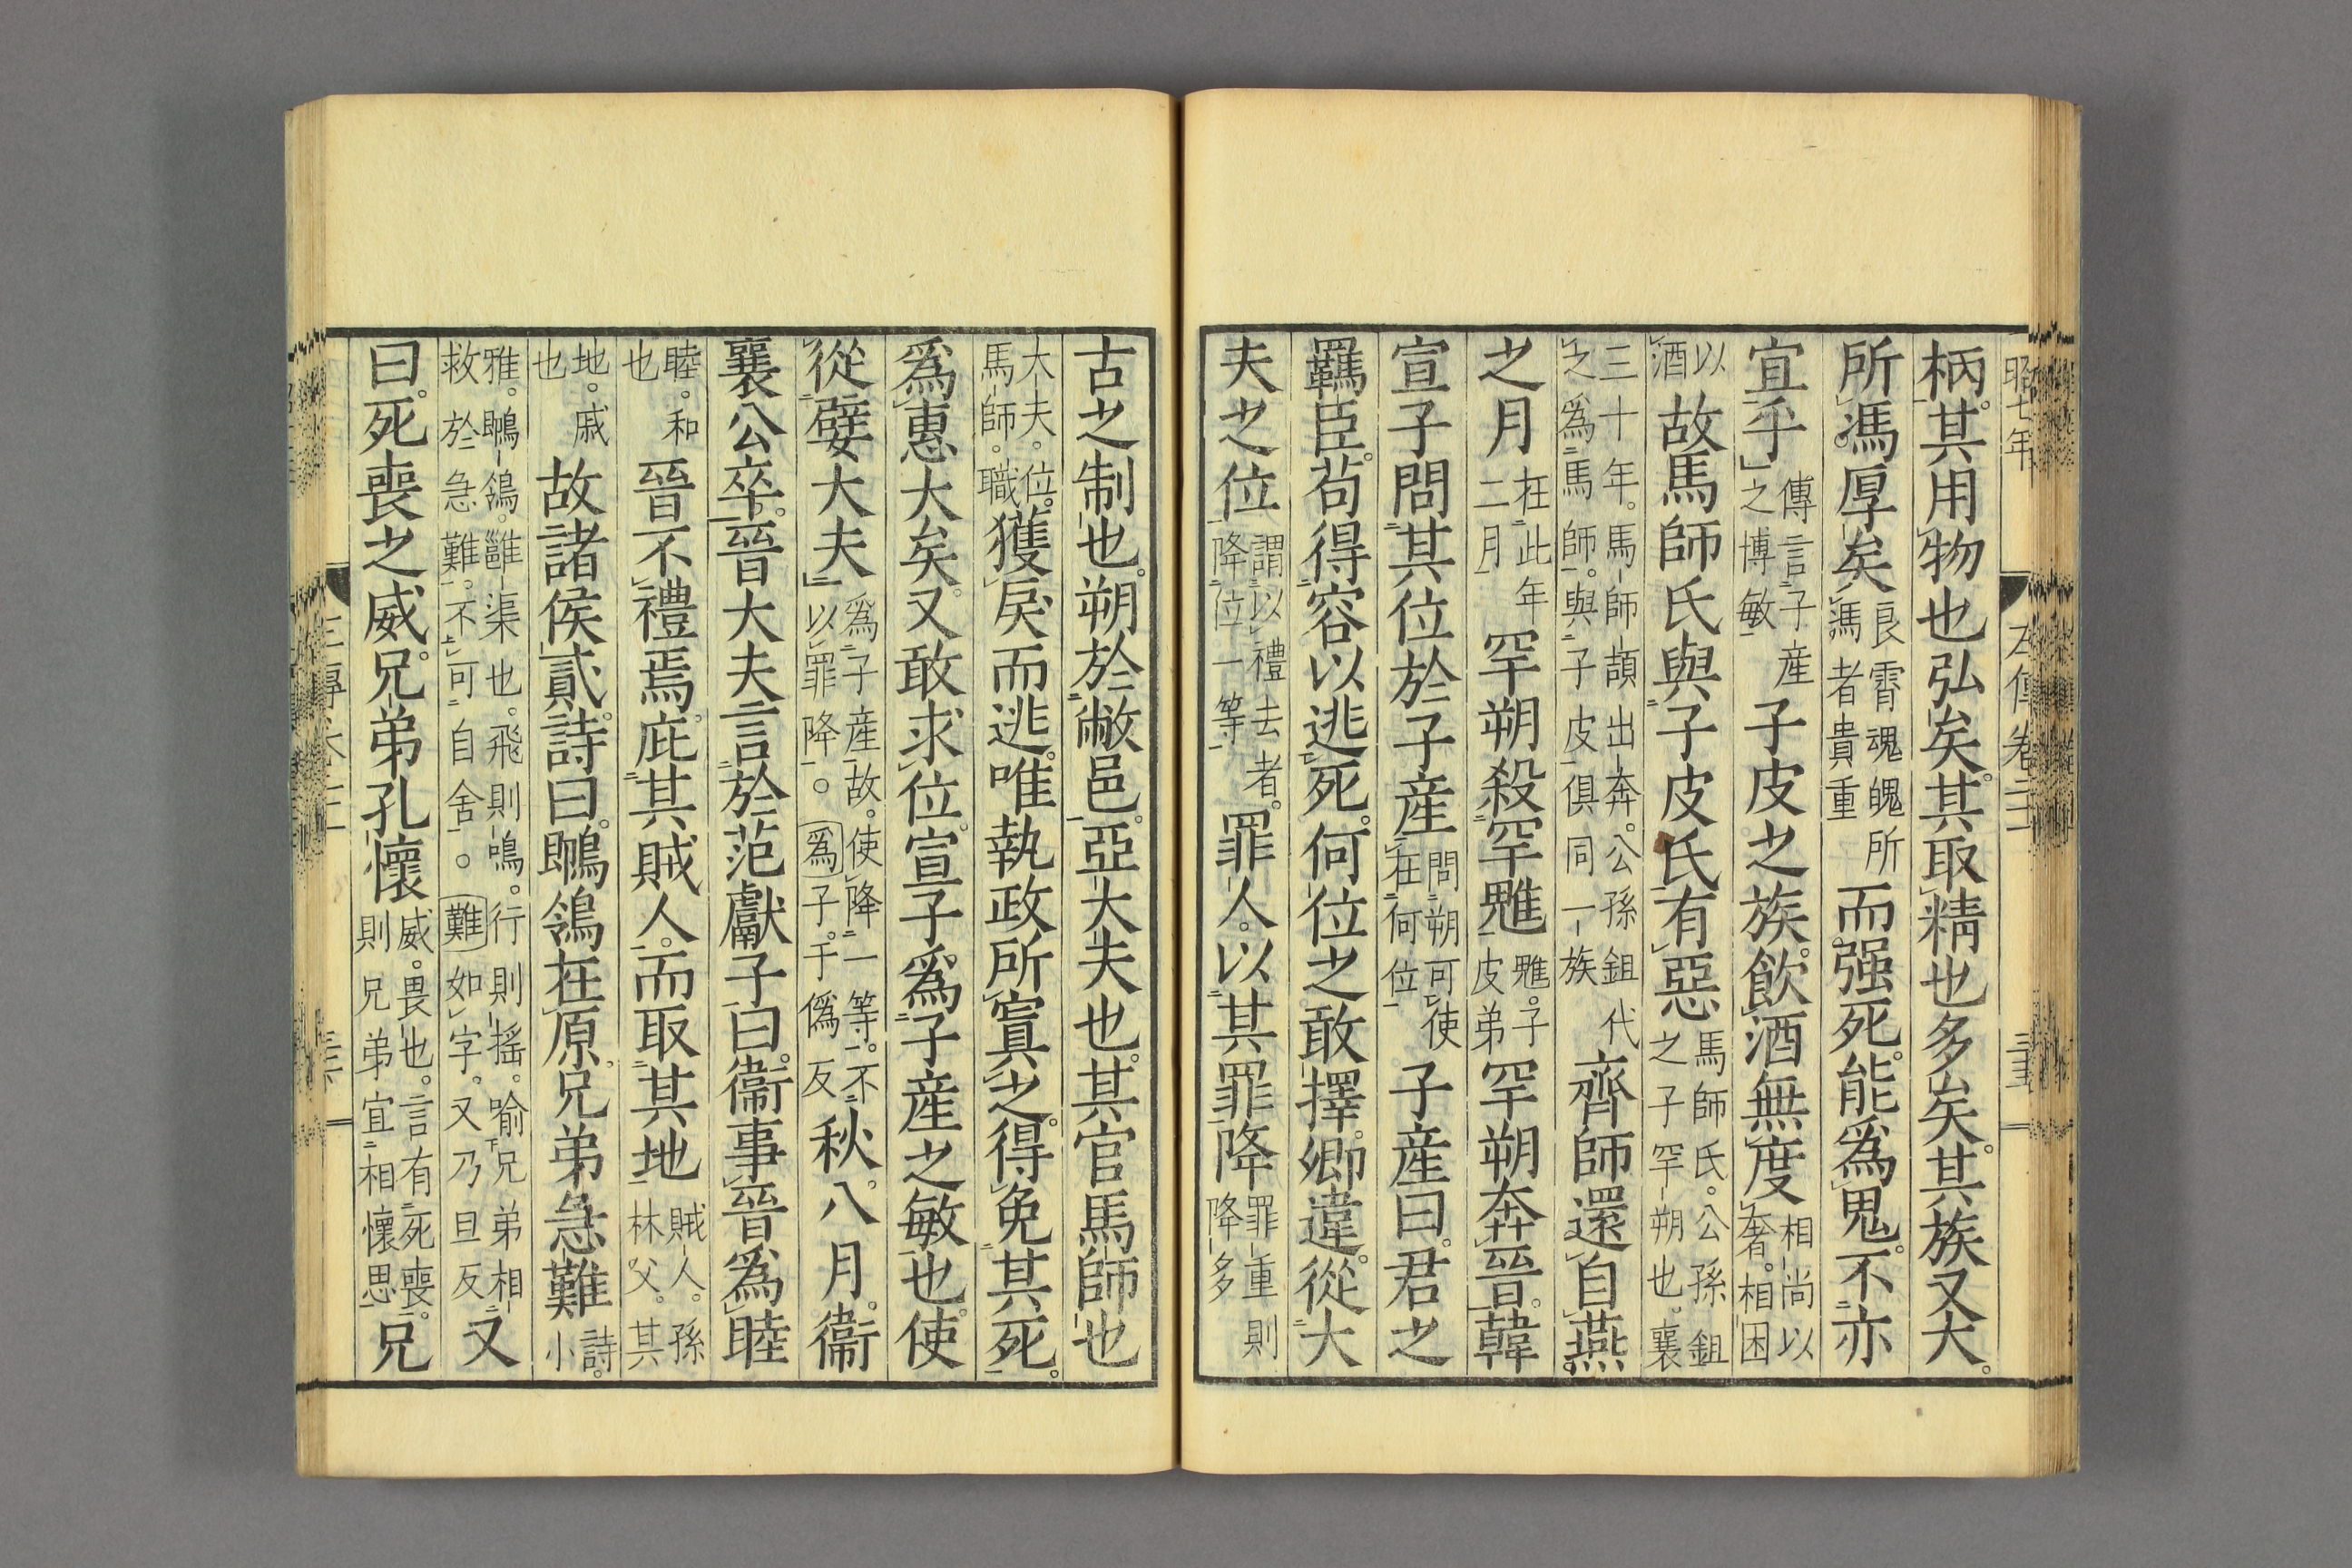 昭七年
柄。其用物也弘矣。其取精也多矣。其族又大。
所馮厚矣良霄魂魄所馮者貴重而强死。能爲鬼。不亦
宜乎傳言子産之博敏子皮之族。飲酒無度相尚以奢。相困
以酒故馬師氏與子皮氏有惡馬師氏。公孫鉏之子罕朔也。襄
三十年。馬師頡出奔。公孫鉏代之爲馬師。與子皮俱同一族齊師還自燕
之月在此年二月罕朔殺罕魋魋。子皮弟罕朔奔晉。韓
宣子問其位於子産問朔可使在何位子産曰。君之
羈臣。苟得容以逃死。何位之敢擇。卿違。從大
夫之位謂以禮去者。降位一等罪人。以其罪降罪重則降多
古之制也。朔於敝邑。亞大夫也。其官馬師也
大夫。位。馬師。職獲戾而逃。唯執政所寘之。得免其死。
爲惠大矣。又敢求位。宣子爲子産之敏也。使
從嬖大夫爲子産故。使降一等。不以罪降。爲子。于僞反秋。八月。衞
襄公卒。晉大夫言於范獻子曰。衞事晉爲睦
睦。和也晉不禮焉。庇其賊人。而取其地賊人。孫林父。其
地。戚也故諸侯貳。詩曰。鴫鴒在原。兄弟急難詩。小
雅。鴫鴒。雝渠也。飛則鳴。行則搖。喩兄弟相救於急難。不可自舍。難如字。又乃旦反又
曰。死喪之威。兄弟孔懷威。畏也。言有死喪。則兄弟宜相懷思兄